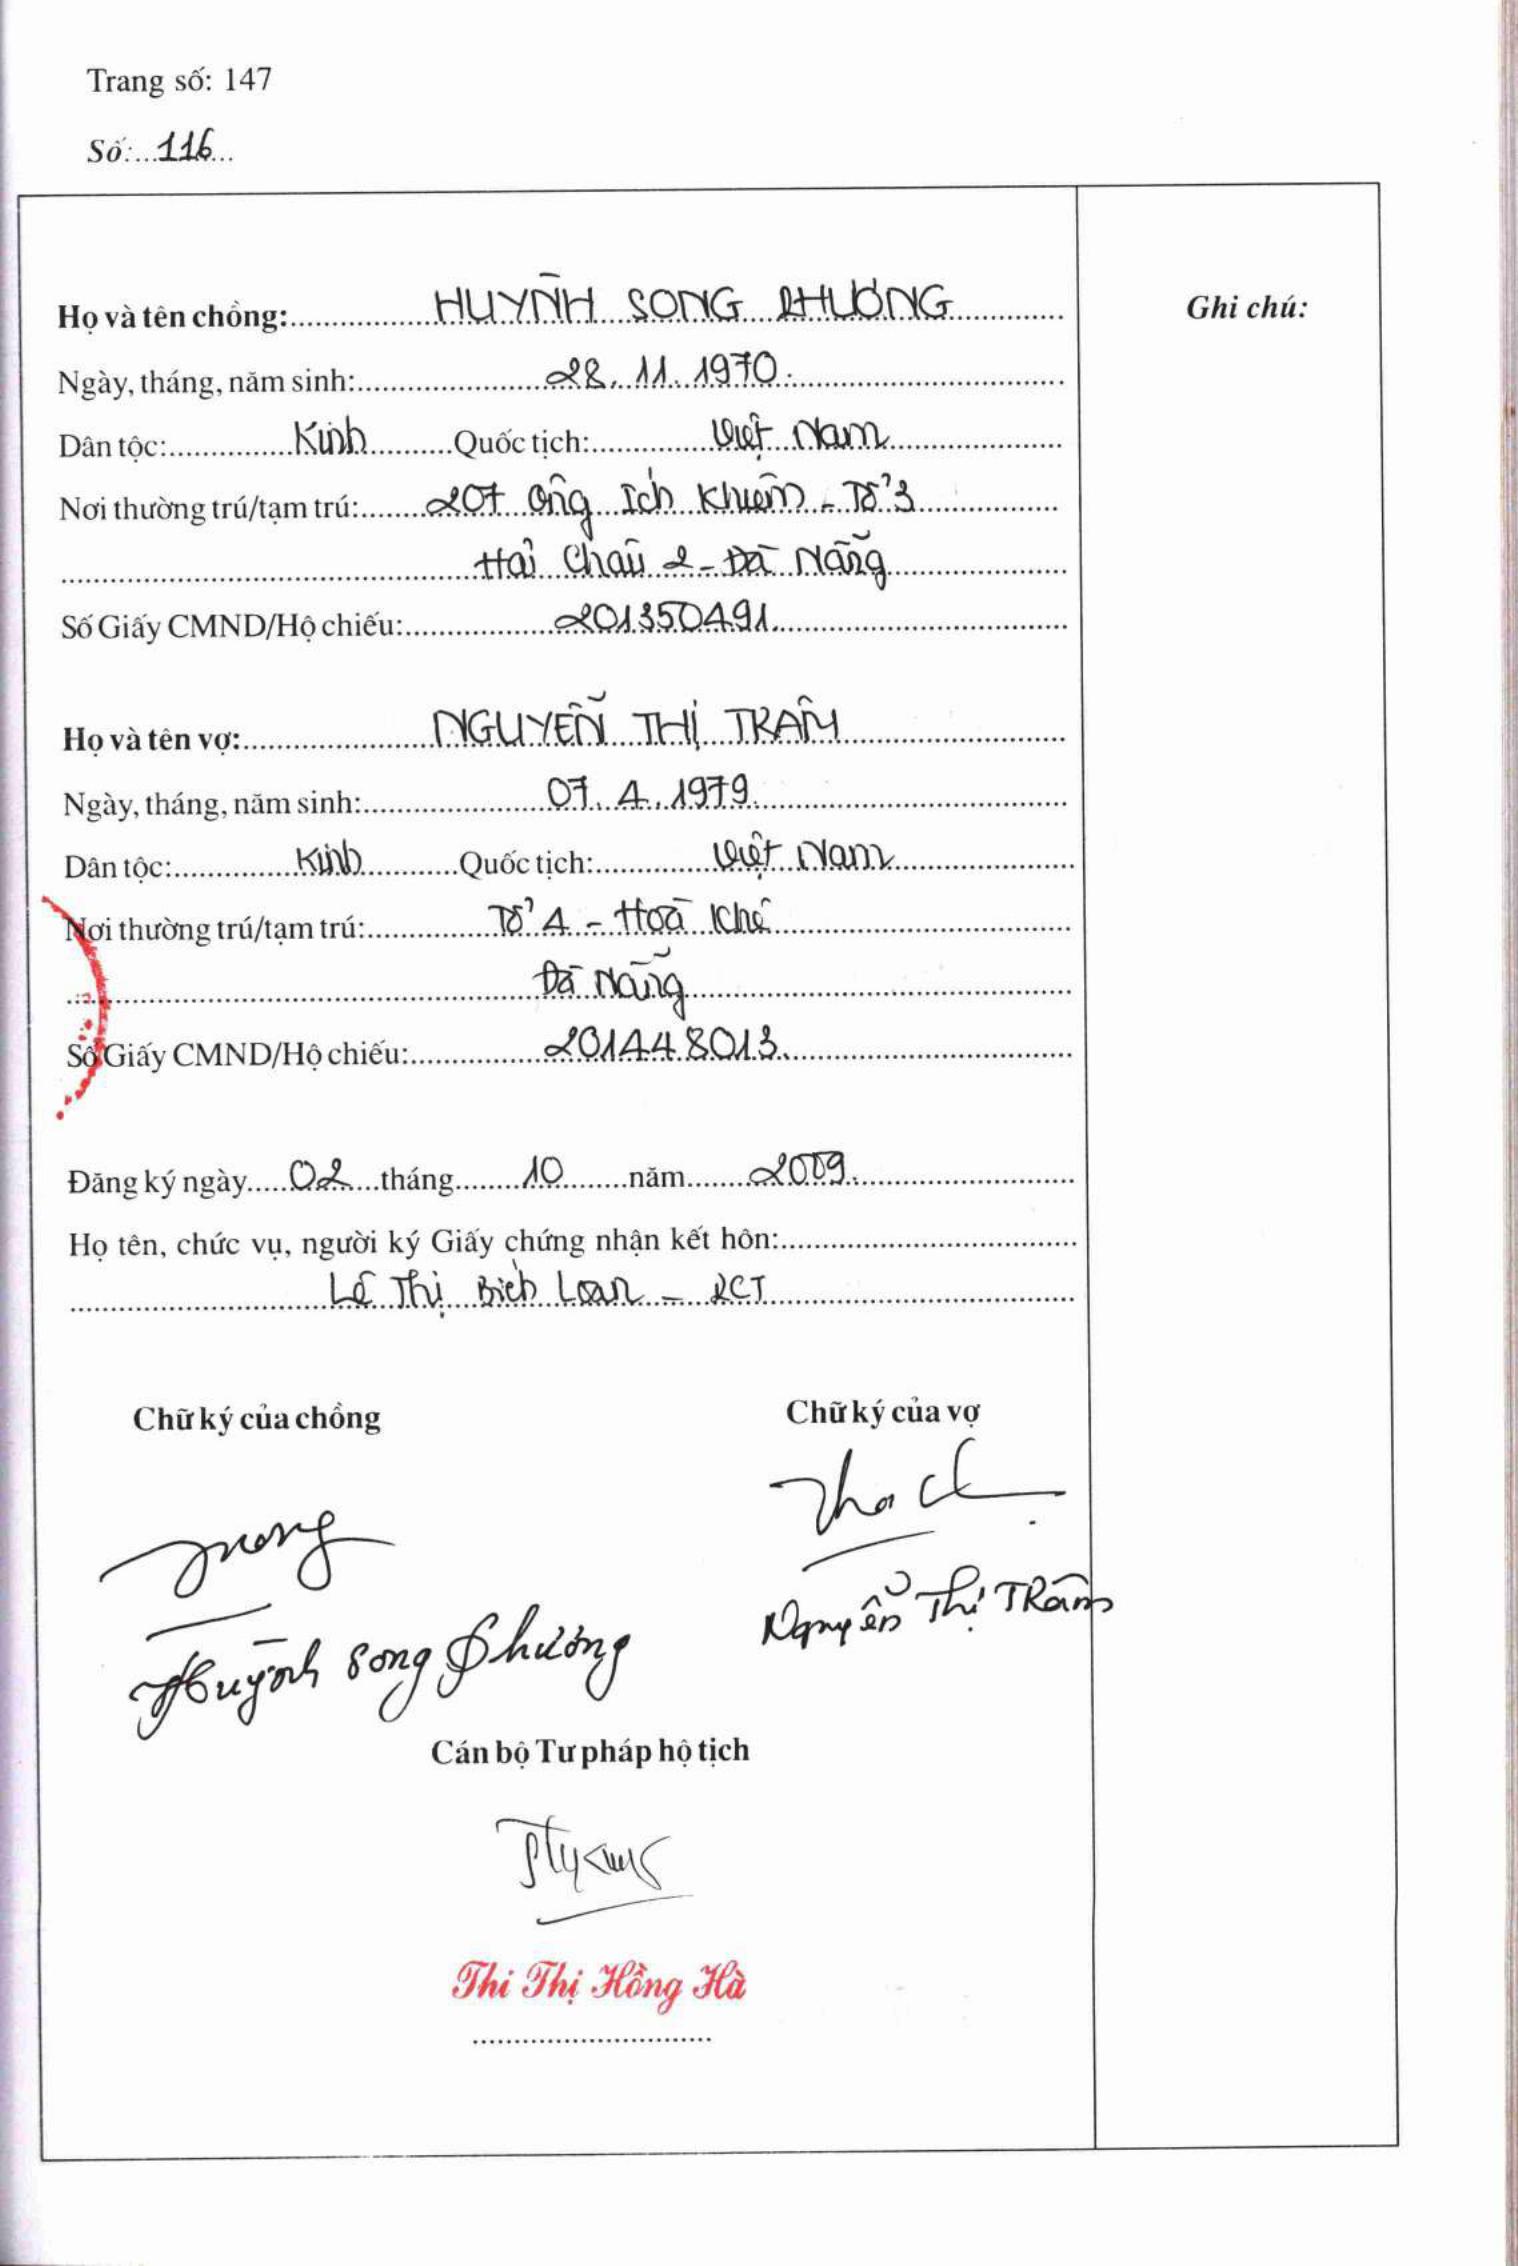 Trang số: 147
Số: 116
Họ và tên chồng: HUỲNH SONG PHƯƠNG
Ghi chú:
Ngày, tháng, năm sinh: 28. 11. 1970.
Dân tộc: Kinh Quốc tịch: Việt Nam
Nơi thường trú/tạm trú: 207 Ông Ích Khiêm - Tổ 3
Hải Châu 2 - Đà Nẵng
Số Giấy CMND/Hộ chiếu: 201350491.
Họ và tên vợ: NGUYỄN THỊ TRÂM
Ngày, tháng, năm sinh: 07. 4. 1979.
Dân tộc: Kinh Quốc tịch: Việt Nam
Nơi thường trú/tạm trú: Tổ 4 - Hoà Khê
Đà Nẵng
Số Giấy CMND/Hộ chiếu: 201448013.
Đăng ký ngày 02 tháng 10 năm 2009.
Họ tên, chức vụ, người ký Giấy chứng nhận kết hôn:
Lê Thị Bích Loan - PCT
Chữ ký của chồng Chữ ký của vợ
Nguyễn Thị Trâm
Huỳnh Song Phương
Cán bộ Tư pháp hộ tịch
Thi Thị Hồng Hà